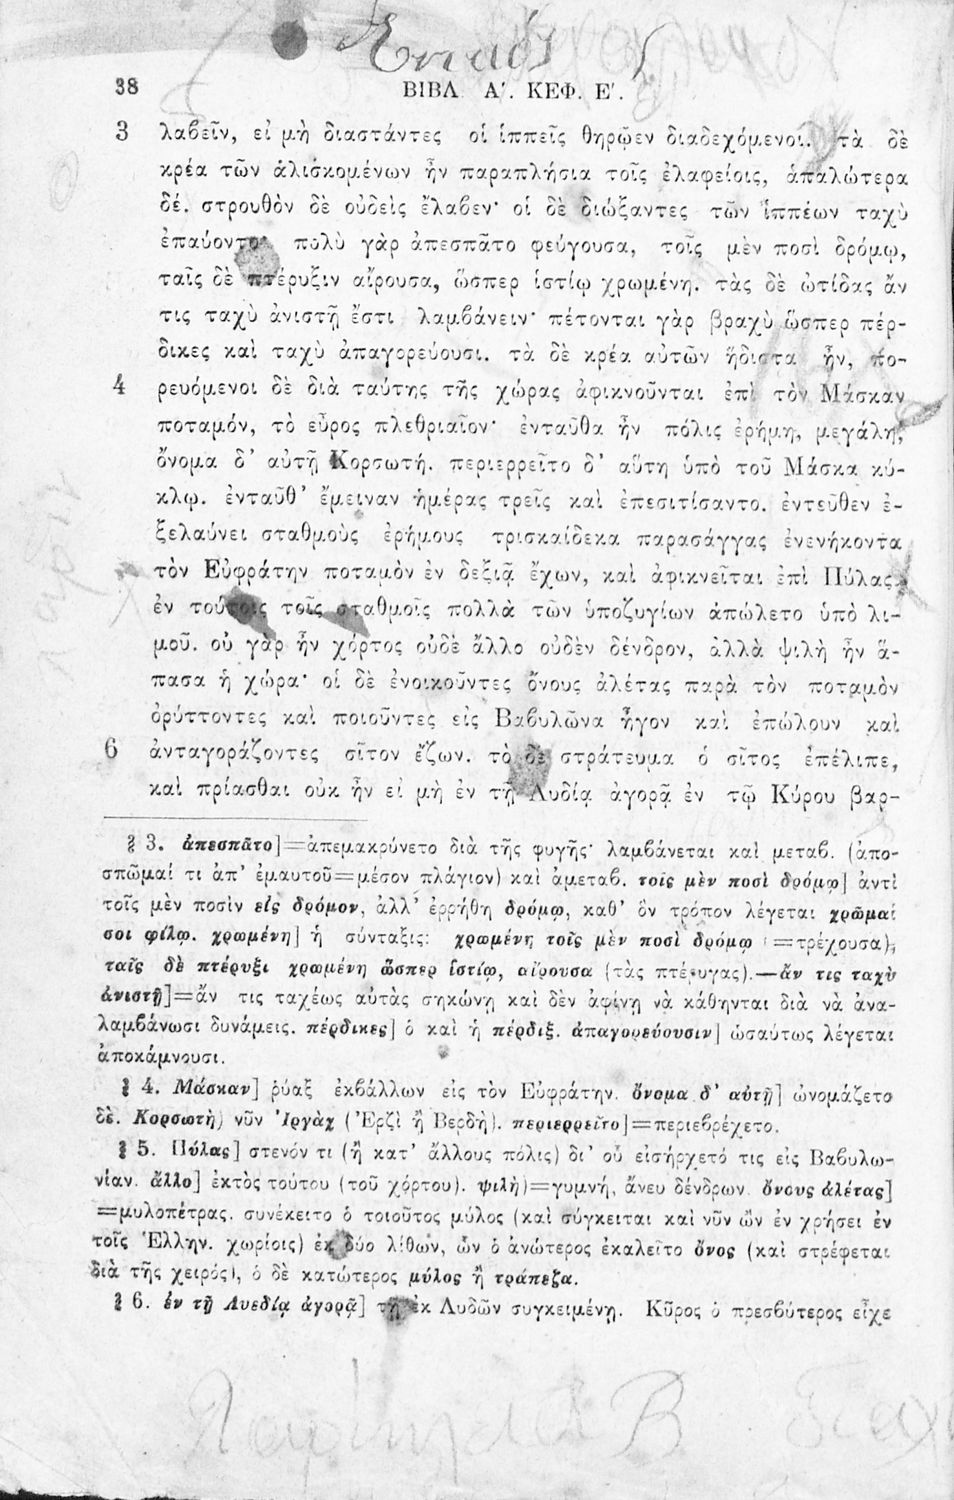 38
ΒΙΒΛ. Α′. ΚΕΦ. Ε′.
3 λαβεῖν, εἰ μὴ διαστάντες οἱ ἱππεῖς θηρῷεν διαδεχόμενοι. τὰ δὲ
κρέα τῶν ἁλισκομένων ἦν παραπλήσια τοῖς ἐλαφείοις, ἁπαλώτερα
δέ. στρουθὸν δὲ οὐδεὶς ἔλαβεν· οἱ δὲ διώξαντες τῶν ἱππέων ταχὺ
ἐπαύοντο· πολὺ γὰρ ἀπεσπᾶτο φεύγουσα, τοῖς μὲν ποσὶ δρόμῳ,
ταῖς δὲ πτέρυξιν αἴρουσα, ὥσπερ ἱστίῳ χρωμένη. τὰς δὲ ὠτίδας ἄν
τις ταχὺ ἀνιστῇ ἔστι λαμβάνειν· πέτονται γὰρ βραχὺ ὥσπερ πέρ-
δικες καὶ ταχὺ ἀπαγορεύουσι. τὰ δὲ κρέα αὐτῶν ἥδιστα ἦν, πο-
4 ρευόμενοι δὲ διὰ ταύτης τῆς χώρας ἀφικνοῦνται ἐπὶ τὸν Μάσκαν
ποταμόν, τὸ εὖρος πλεθριαῖον· ἐνταῦθα ἦν πόλις ἐρήμη, μεγάλη,
ὄνομα δ’ αὐτῇ Κορσωτή. περιερρεῖτο δ’ αὕτη ὑπὸ τοῦ Μάσκα κύ-
κλῳ. ἐνταῦθ’ ἔμειναν ἡμέρας τρεῖς καὶ ἐπεσιτίσαντο. ἐντεῦθεν ἐ-
ξελαύνει σταθμοὺς ἐρήμους τρισκαίδεκα παρασάγγας ἐνενήκοντα
τὸν Εὐφράτην ποταμὸν ἐν δεξιᾷ ἔχων, καὶ ἀφικνεῖται ἐπὶ Πύλας.
ἐν τούτοις τοῖς σταθμοῖς πολλὰ τῶν ὑποζυγίων ἀπώλετο ὑπὸ λι-
μοῦ. οὐ γὰρ ἦν χόρτος οὐδὲ ἄλλο οὐδὲν δένδρον, ἀλλὰ ψιλὴ ἦν ἅ-
πασα ἡ χώρα· οἱ δὲ ἐνοικοῦντες ὄνους ἀλέτας παρὰ τὸν ποταμὸν
ὀρύττοντες καὶ ποιοῦντες εἰς Βαβυλῶνα ἦγον καὶ ἐπώλουν καὶ
6 ἀνταγοράζοντες σῖτον ἔζων. τὸ δὲ στράτευμα ὁ σῖτος ἐπέλιπε,
καὶ πρίασθαι οὐκ ἦν εἰ μὴ ἐν τῇ Λυδίᾳ ἀγορᾷ ἐν τῷ Κύρου βαρ-
§ 3. ἀπεσπᾶτο]=ἀπεμακρύνετο διὰ τῆς φυγῆς· λαμβάνεται καὶ μεταβ. (ἀπο-
σπῶμαί τι ἀπ’ ἐμαυτοῦ=μέσον πλάγιον) καὶ ἀμεταβ. τοῖς μὲν ποσὶ δρόμῳ] ἀντὶ
τοῖς μὲν ποσὶν εἰς δρόμον, ἀλλ’ ἐρρήθη δρόμῳ, καθ’ ὃν τρόπον λέγεται χρῶμαί
σοι φίλῳ. χρωμένη] ἡ σύνταξις: χρωμένη τοῖς μὲν ποσὶ δρόμῳ (=τρέχουσα),
ταῖς δὲ πτέρυξι χρωμένη ὥσπερ ἱστίῳ, αἴρουσα (τὰς πτέρυγας).—ἄν τις ταχὺ
ἀνιστῇ]=ἄν τις ταχέως αὐτὰς σηκώνῃ καὶ δὲν ἀφίνῃ νὰ κάθηνται διὰ νὰ ἀνα-
λαμβάνωσι δυνάμεις. πέρδικες] ὁ καὶ ἡ πέρδιξ. ἀπαγορεύουσιν] ὡσαύτως λέγεται
ἀποκάμνουσι.
§ 4. Μάσκαν] ῥύαξ ἐκβάλλων εἰς τὸν Εὐφράτην. ὄνομα δ’ αὐτῇ] ὠνομάζετο
δὲ. Κορσωτὴ) νῦν Ἰργὰχ (Ἐρζὶ ἢ Βερδὴ). περιερρεῖτο]=περιεβρέχετο.
§ 5. Πύλας] στενόν τι (ἢ κατ’ ἄλλους πόλις) δι’ οὗ εἰσήρχετό τις εἰς Βαβυλω-
νίαν. ἄλλο] ἐκτὸς τούτου (τοῦ χόρτου). ψιλὴ)=γυμνή, ἄνευ δένδρων. ὄνους ἀλέτας]
=μυλοπέτρας. συνέκειτο ὁ τοιοῦτος μύλος (καὶ σύγκειται καὶ νῦν ὢν ἐν χρήσει ἐν
τοῖς Ἑλλην. χωρίοις) ἐκ δύο λίθων, ὧν ὁ ἀνώτερος ἐκαλεῖτο ὄνος (καὶ στρέφεται
διὰ τῆς χειρός), ὁ δὲ κατώτερος μύλος ἢ τράπεζα.
§ 6. ἐν τῇ Λυεδίᾳ ἀγορᾷ] τῇ ἐκ Λυδῶν συγκειμένῃ. Κῦρος ὁ πρεσβύτερος εἶχε